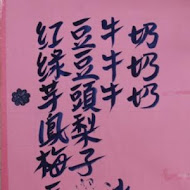 红豆牛奶
绿豆牛奶
芋頭牛奶
鳳梨
梅子